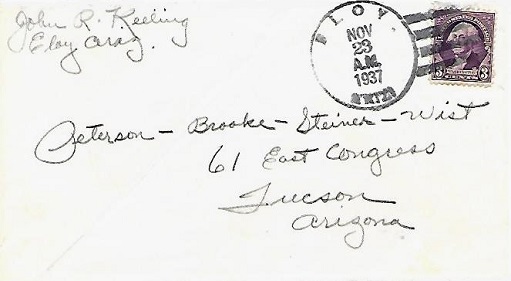 John R. Keeling
Eloy Ariz.
ELOY.
NOV
23
A.M.
1937
ARIZ.
3 3
Peterson - Brooke - Steiner - Wist
61 East Congress
Tucson
Arizona